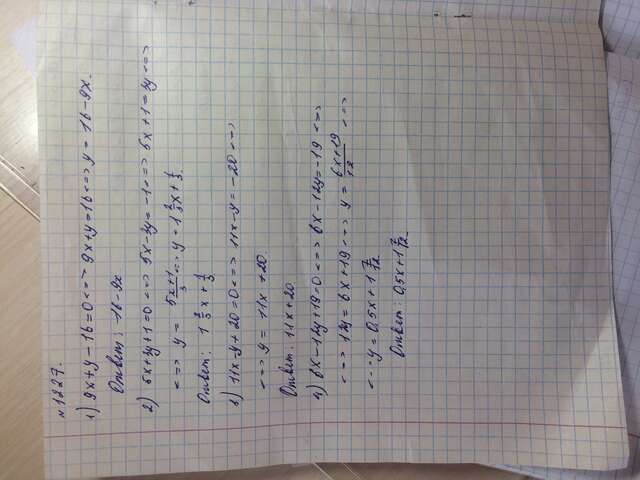 №1227.
1) 9x+y-16=0 <=> 9x+y=16 <=> y=16-9x.
Ответ: 16-9x
2) 5x+3y+1=0 <=> 5x-3y=-1 <=> 5x+1=3y <=>
<=> y = 5x+1/3 <=> y = 1 2/3 x + 1/3.
Ответ: 1 2/3 x + 1/3
3) 11x-y+20=0 <=> 11x-y=-20 <=>
<=> y = 11x+20.
Ответ: 11x+20
4) 6x-12y+19=0 <=> 6x-12y=-19 <=>
<=> 12y=6x+19 <=> y = 6x+19/12 <=>
<=> y=0,5x+1 7/12
Ответ: 0,5x+1 7/12